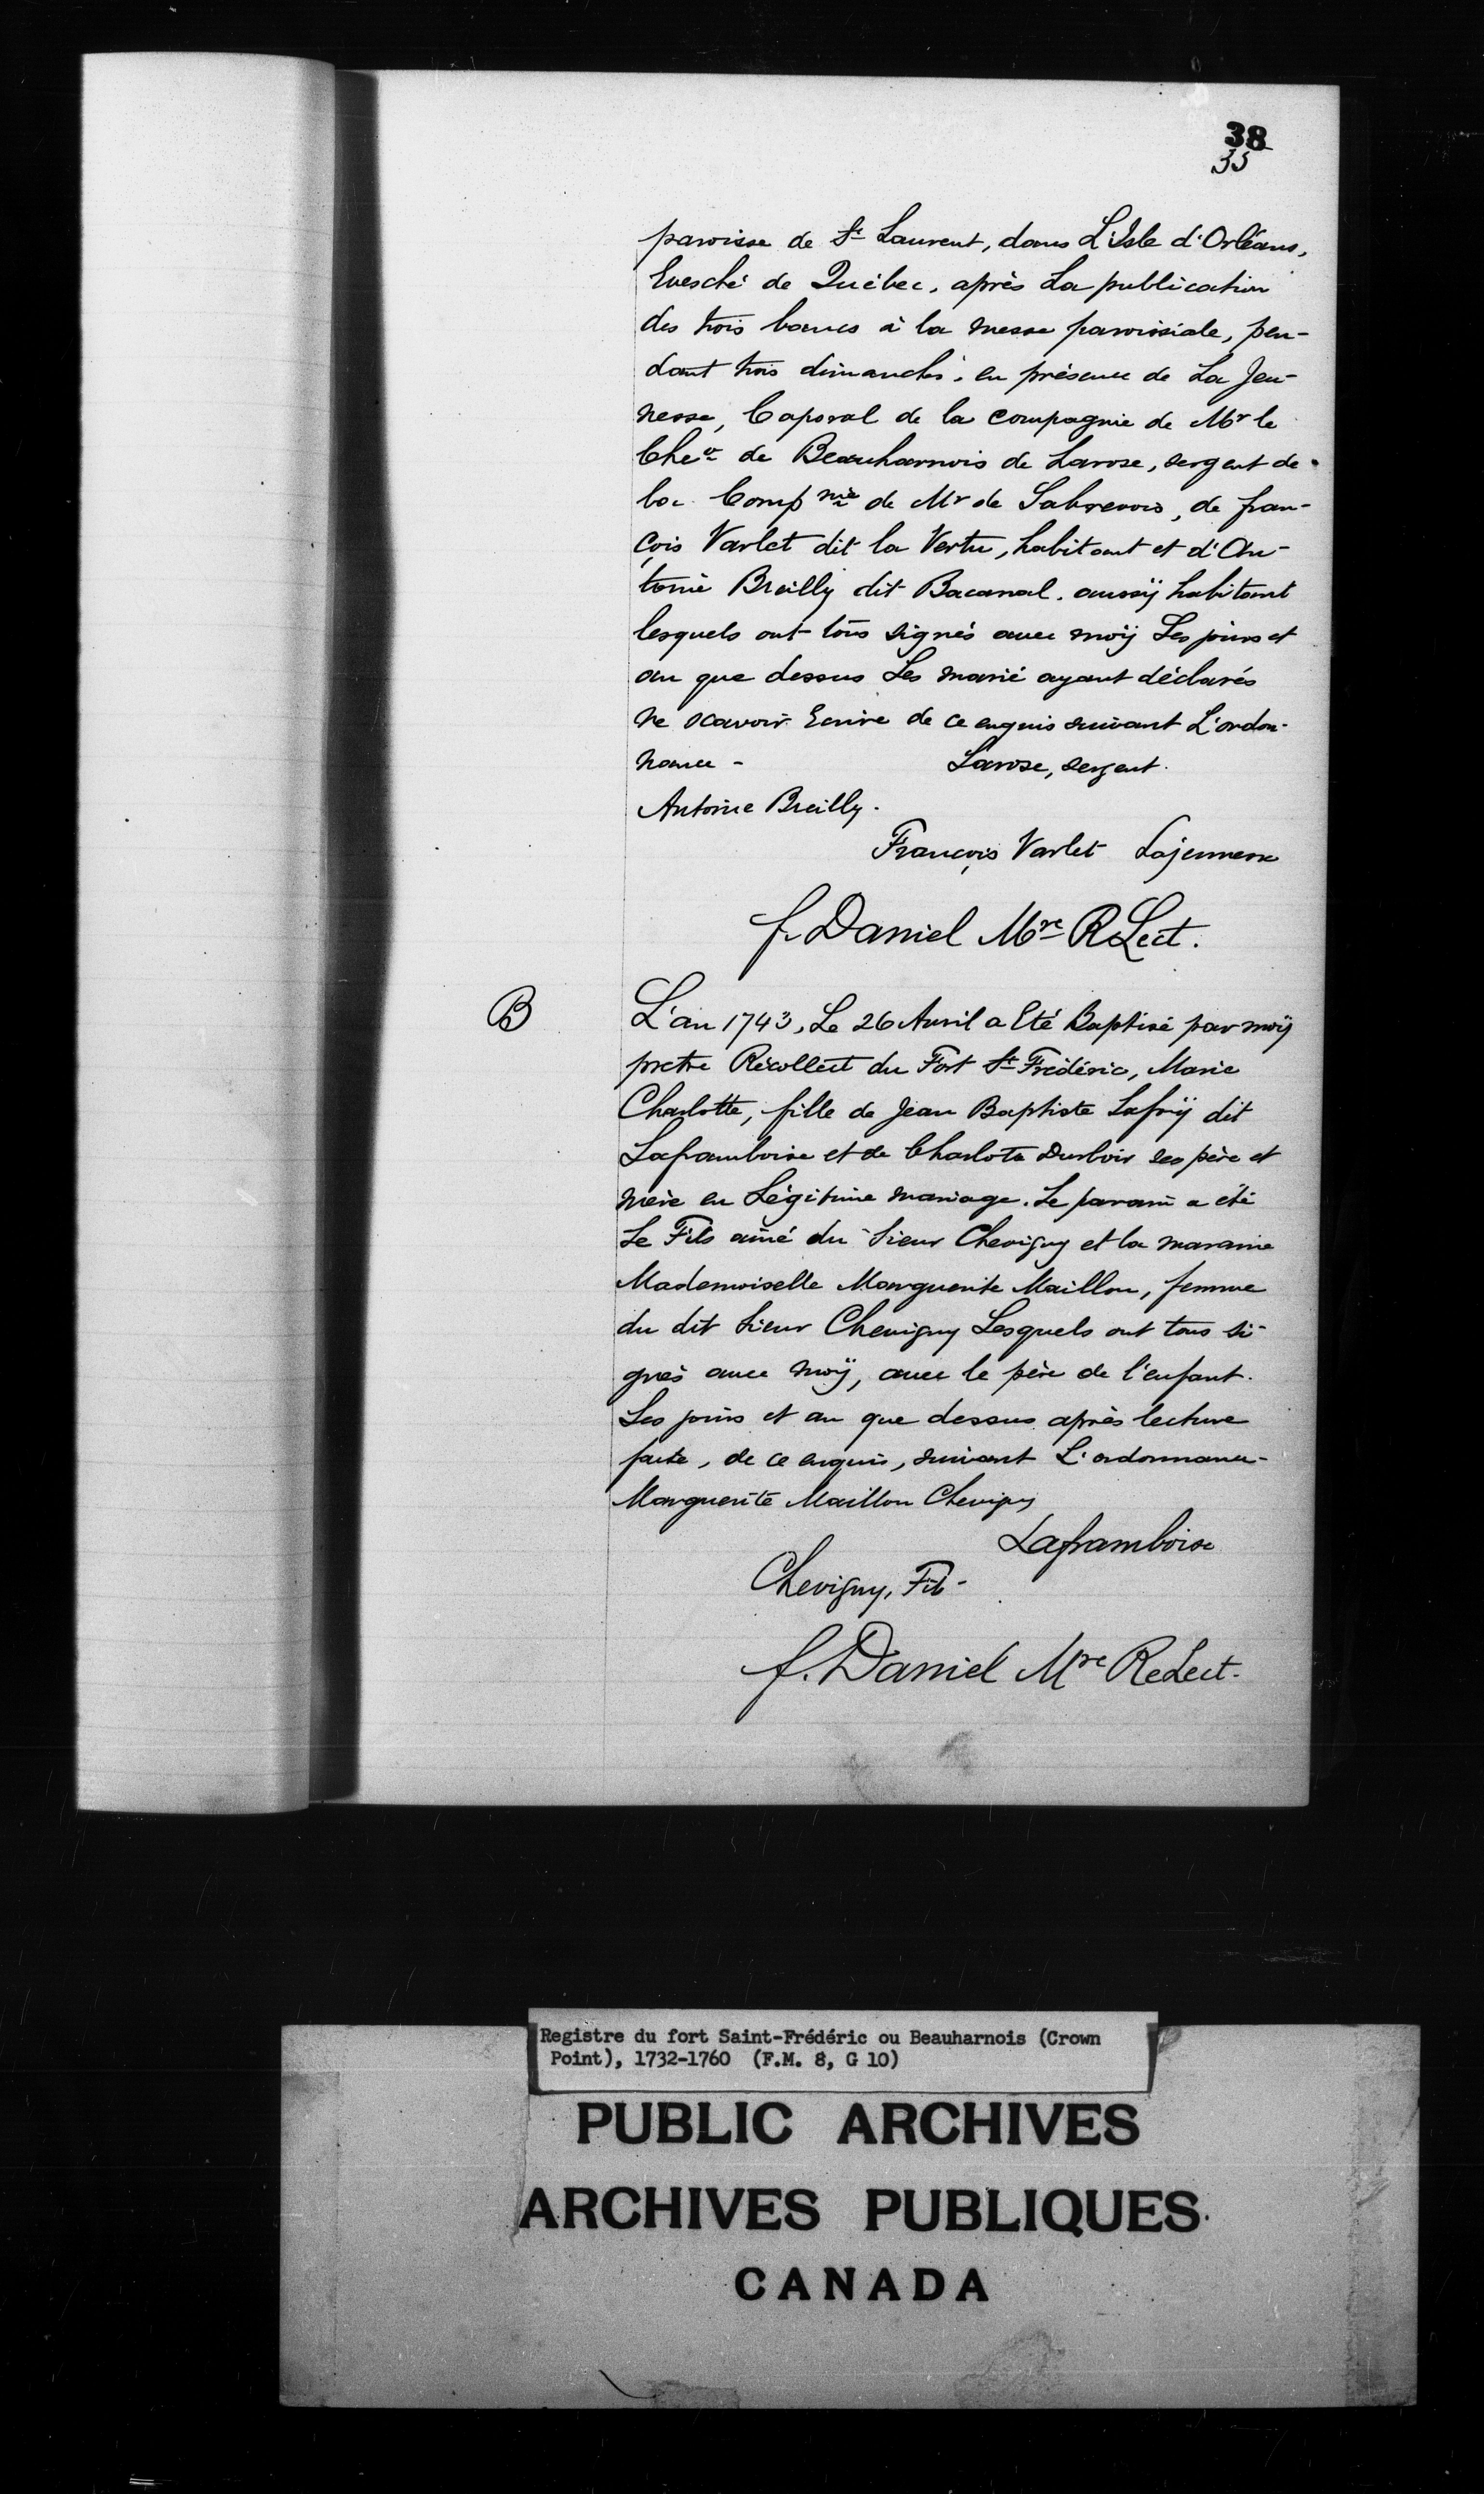 38
35
paroisse de St Laurent, dans L'Isle d'Orléans,
Evesché de Québec, après La publication
des trois bancs à la messe paroissiale, pen-
dant trois dimanchès, en présence de La Jeu-
nesse, Caporal de la compagnie de Mr le
Cher de Beauharnois de Larose, sergent de
la Compnie de Mr de Sabrevois, de fran-
çois Varlet dit la Vertu, habitant et d'An-
toine Breilly dit Bacanal. aussÿ habitant
lesquels ont tous signés avec moÿ Les jours et
an que dessus Les marié ayant déclarés
ne scavoir Ecrire de ce enquis suivant L'ordon-
nance - Larose, sergent.
Antoine Breilly.
François Varlet Lajeunesse
f. Daniel Mre RLect.
B L'an 1743, Le 26 Avril a Eté Baptisé par moÿ
pretre Récollect du Fort St Frédéric, Marie
Charlotte, fille de Jean Baptiste Lafoÿ dit
Laframboise et de Charlote Dubois ses père et
mère en Légitime mariage. Le parain a été
Le Fils ainé du Sieur Chevigny et la maraine
Mademoiselle Marguerite Maillou, femme
du dit Sieur Chevigny Lesquels ont tous si-
gnés avec moÿ, avec le père de l'enfant.
Les jours et an que dessus après lecture
faite, de ce enquis, suivant L'ordonnance-
Marguerite Maillou Chevigny
Laframboise
Chevigny, Fils-
f. Daniel Mre ReLect.
Registre du fort Saint-Frédéric ou Beauharnois (Crown
Point), 1732-1760 (F.M. 8, G 10)
PUBLIC ARCHIVES
ARCHIVES PUBLIQUES
CANADA